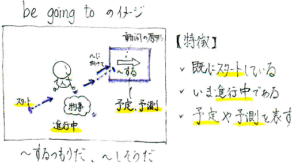 be going to のイメージ
【特徴】
〜する
スタート
物事
進行中
予定、予測
既にスタートしている
いま進行中である
予定や予測を表す
〜するつもりだ、〜しそうだ